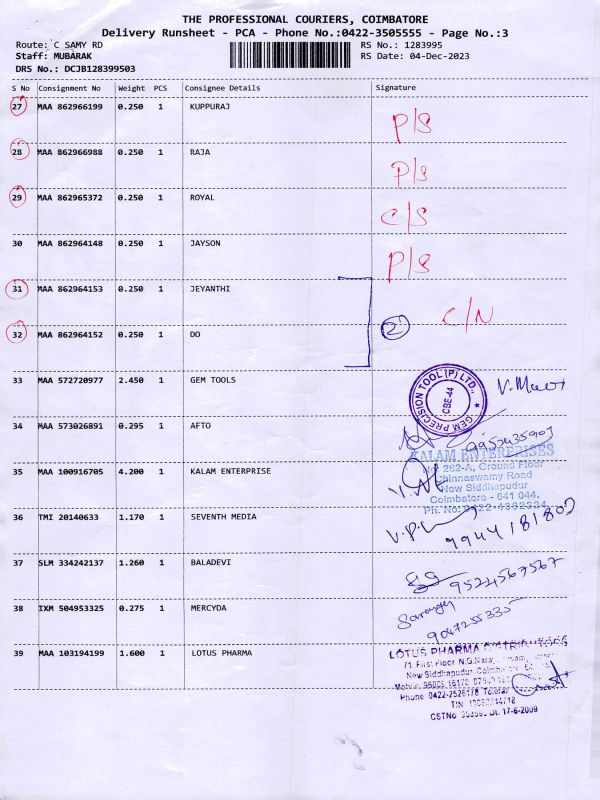 THE PROFESSIONAL COURIERS, COIMBATORE
Delivery Runsheet - PCA - Phone No.:0422-3505555 - Page No.:3
Route: C SAMY RD RS No.: 1283995
Staff: MUBARAK RS Date: 04-Dec-2023
DRS No.: DCJB128399503
S No Consignment No Weight PCS Consignee Details Signature
27 MAA 862966199 0.250 1 KUPPURAJ P/S
28 MAA 862966988 0.250 1 RAJA P/S
29 MAA 862965372 0.250 1 ROYAL C/S
30 MAA 862964148 0.250 1 JAYSON P/S
31 MAA 862964153 0.250 1 JEYANTHI C/N
32 MAA 862964152 0.250 1 DO 2
33 MAA 572720977 2.450 1 GEM TOOLS
GEM PRECISION TOOL (P) LTD.,
CBE-44
34 MAA 573026891 0.295 1 AFTO
35 MAA 100916705 4.200 1 KALAM ENTERPRISE
KALAM ENTERPRISES
No: 262-A, Ground Floor
Chinnaswamy Road
New Siddhapudur
Coimbatore - 641 044.
Ph. No: 0422-4392334
36 TMI 20140633 1.170 1 SEVENTH MEDIA
37 SLM 334242137 1.260 1 BALADEVI 9524567567
38 IXM 504953325 0.275 1 MERCYDA
9047255335
39 MAA 103194199 1.600 1 LOTUS PHARMA
LOTUS PHARMA
First Floor N.G.
New Siddhapudur
Phone 0422-2526178
TIN
CSTNo Dt. 17-6-2009